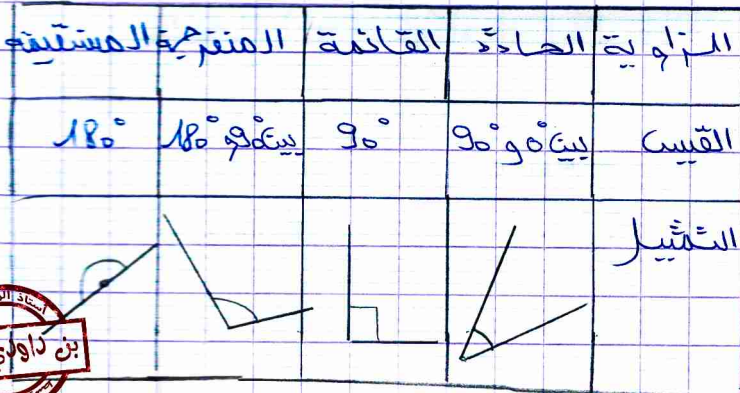 الزاوية الحادة القائمة المنفرجة المستقيمة
القيس بين 0° و 90° 90° بين 90° و 180° 180°
التمثيل
أستاذ
بن داودي